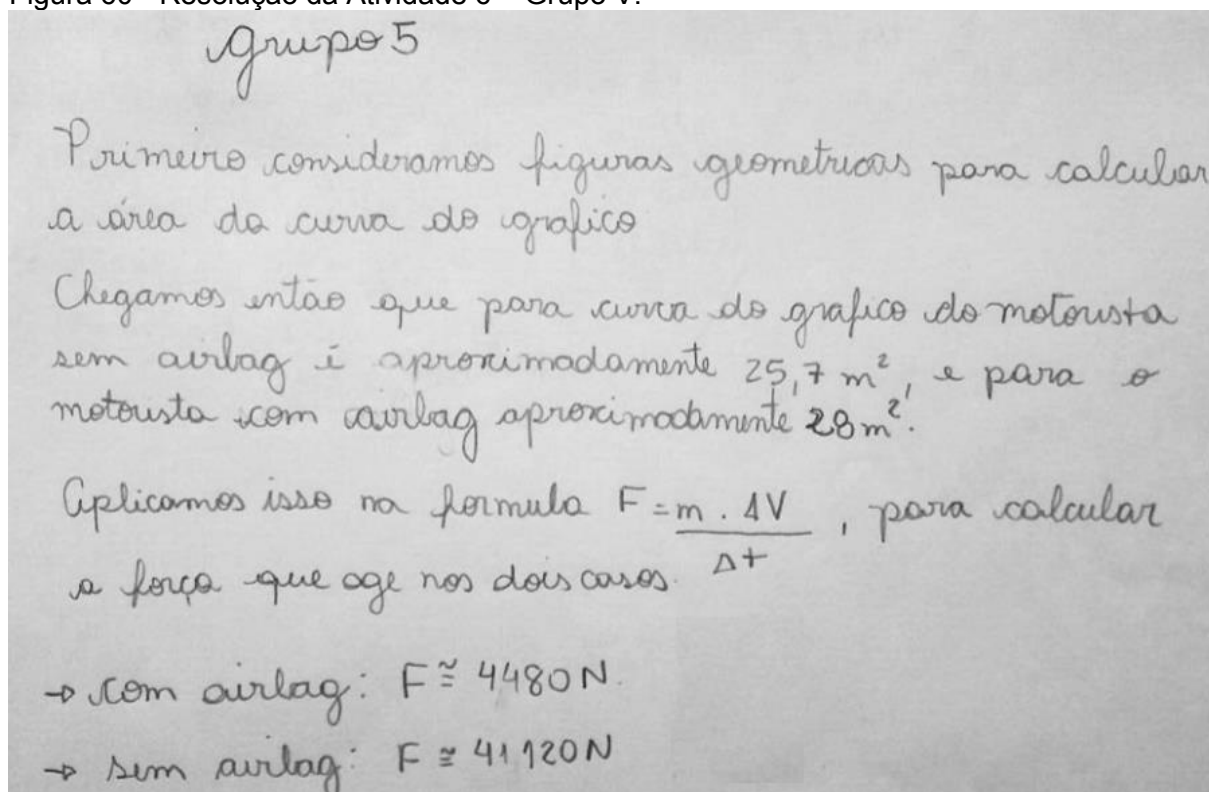 Figura 30 - Resolução da Atividade 3 – Grupo V.
Grupo 5
Primeiro consideramos figuras geometricas para calcular
a área da curva do grafico
Chegamos então que para curva do grafico do motorista
sem airbag é aproximadamente 25,7 m², e para o
motorista com airbag aproximadamente 28m².
Aplicamos isso na formula F = m . ΔV / Δt , para calcular
a força que age nos dois casos.
→ com airbag: F ≅ 4480N.
→ sem airbag: F ≅ 41120N